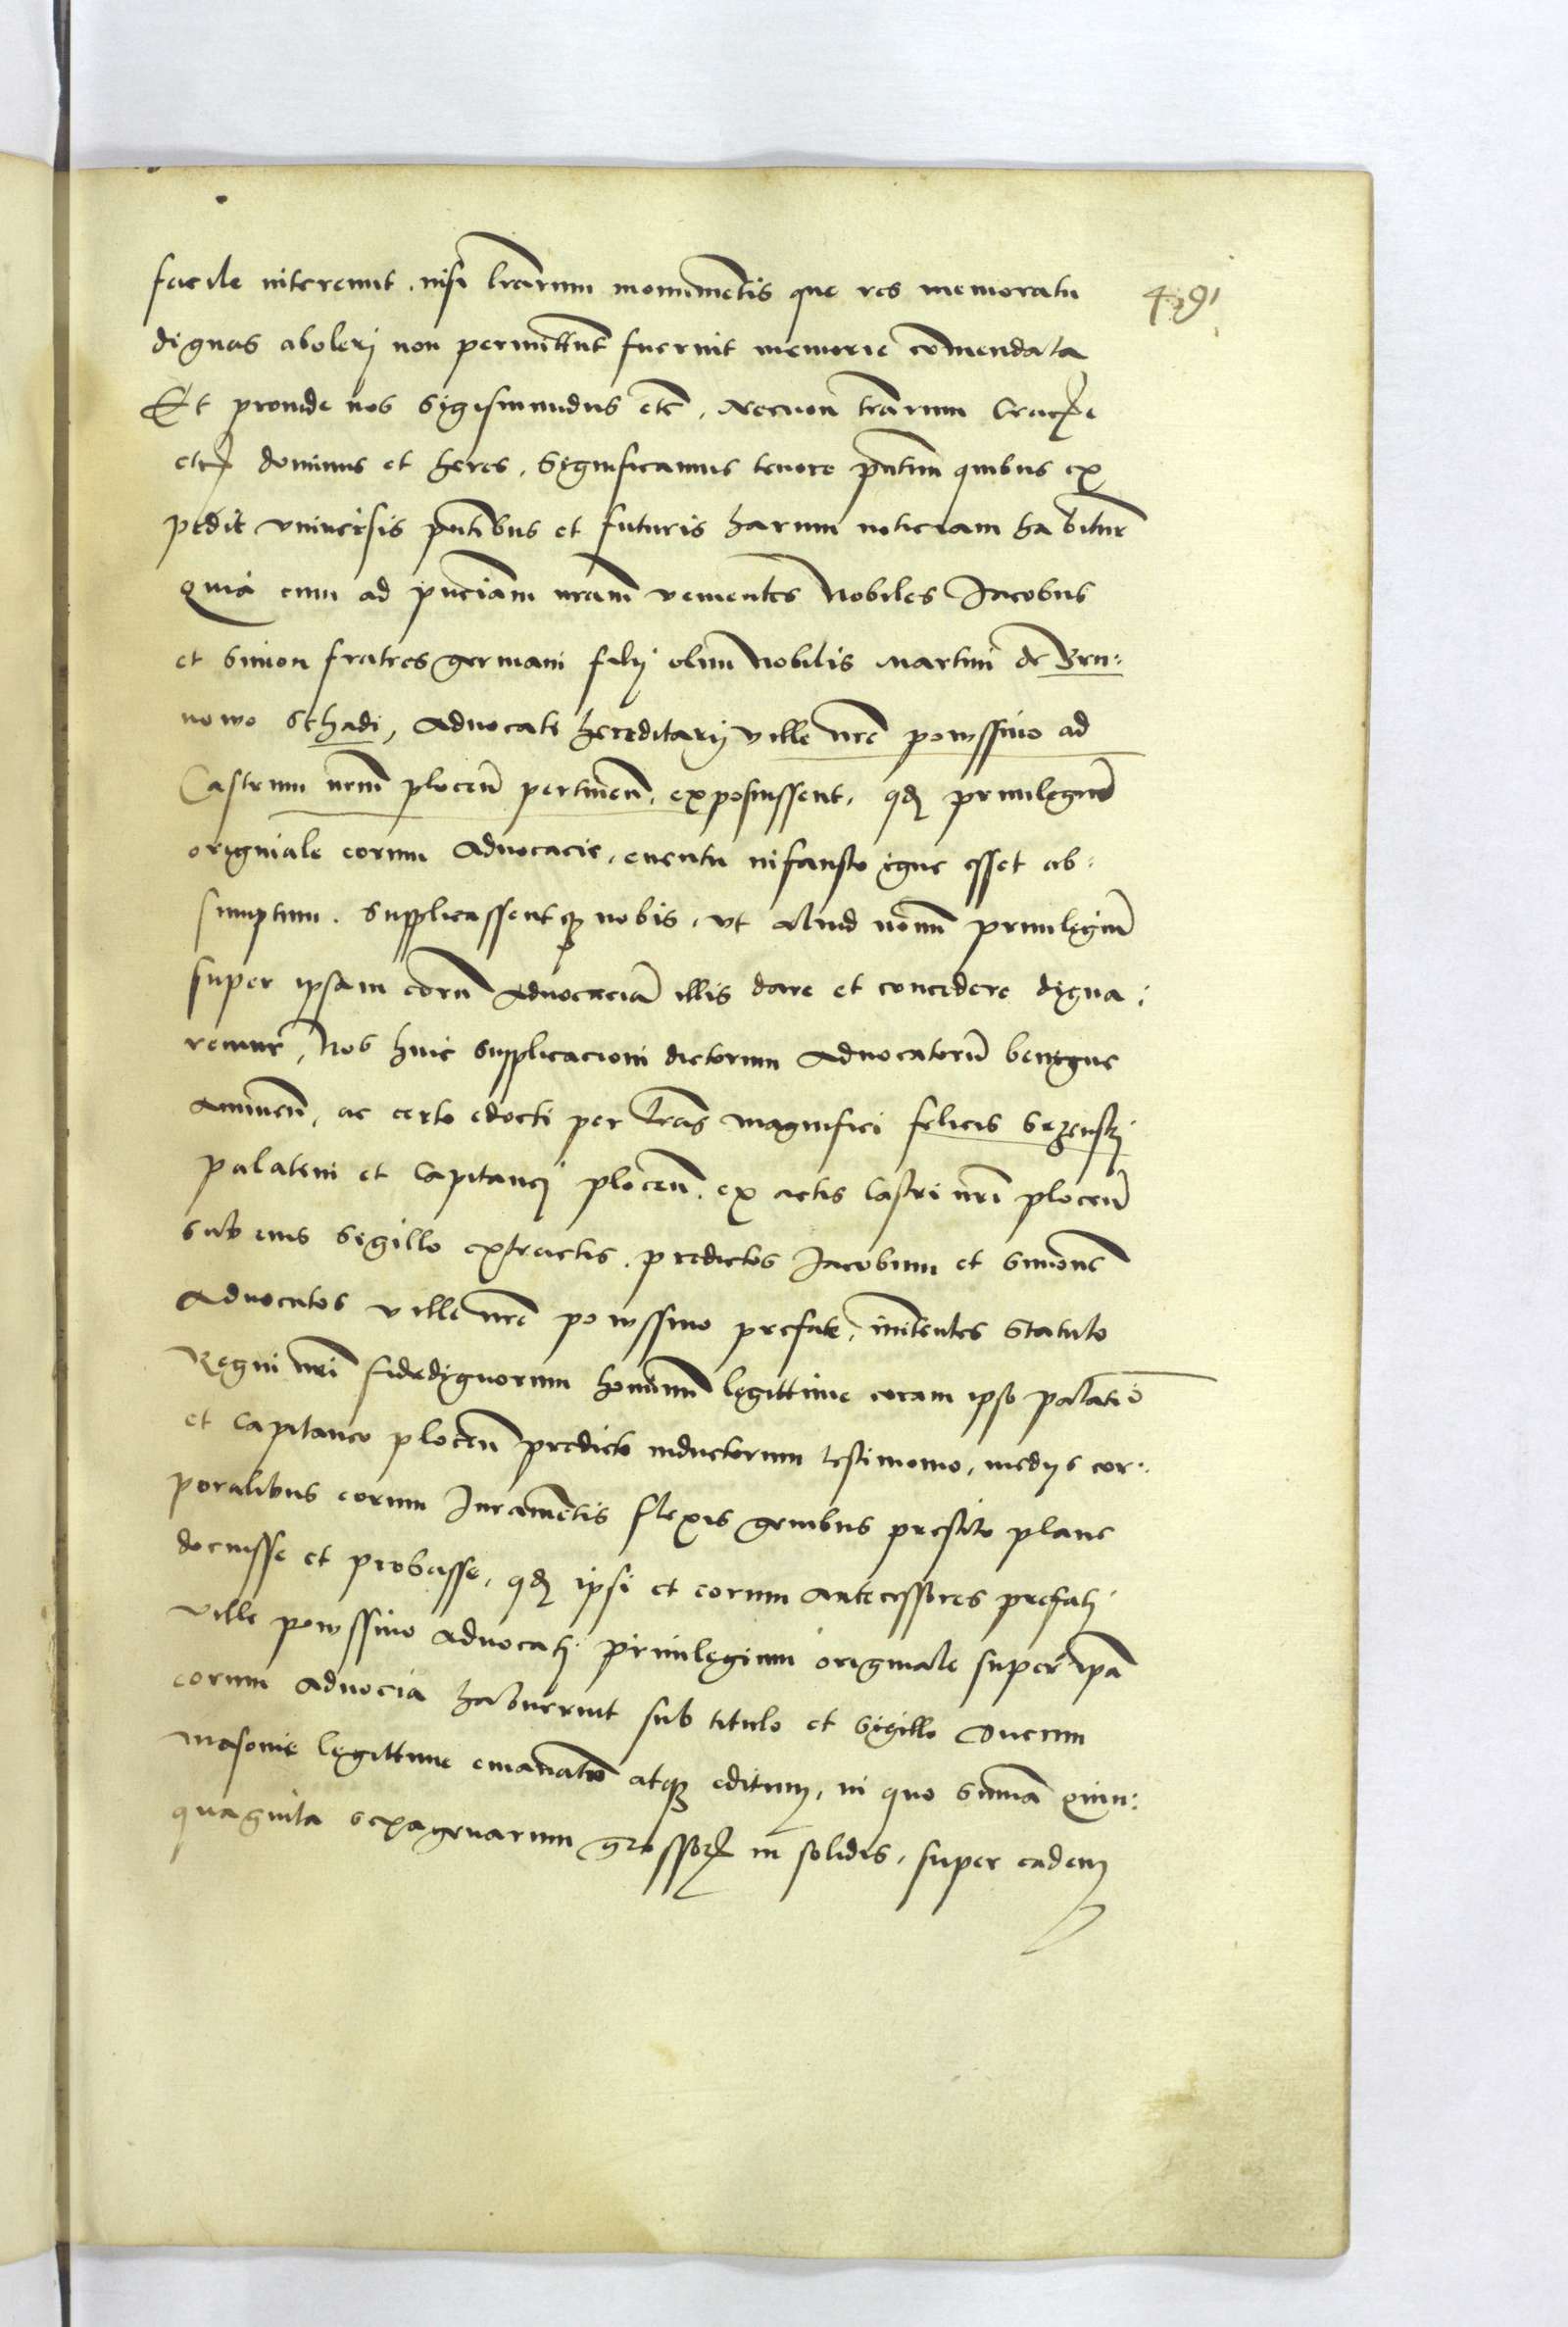 facile intereunt, nisi lrarum monumentis que res memoratu
dignas aboleri non permittunt fuerint memorie comendata
Et proinde nos Sigismundus etc. Necnon trarum Crac
etc dominus et heres. Significamus tenore pntium quibus ex
pedit universis pntibus et futuris harum noticiam habitur
Quia cum ad pnciam nram venientes Nobiles Jacobus
et Simon fratres germani filij olim Nobilis Martini de Bru:
nowo Schadi, Advocati hereditarij ville nre powssino ad
Castrum nrm plocen pertinen, exposuissent, qd privilegium
originale eorum Advocacie, eventu infausto igne esset ab:
sumptum. Supplicassentq nobis, ut aliud novum privilegium
super ipsam eorum Advocaciam illis dare et concedere digna:
remur, Nos huic supplicacioni dictorum Advocatorum benigne
Annuen, ac certo edocti per lras magnifici felicis Srzenskj
palatini et Capitanej plocen, ex actis Castri nri plocen
sub eius Sigillo extractis, predictos Jacobum et Simone
Advocatos ville nre powssino prefate, innitentes Statuto
Regni nri fidedignorum hominum legittime coram ipso palatino
et Capitaneo plocen predicto inductorum testimonio, medijs cor:
poralibus eorum Juramentis flexis genibus prestito plane
docuisse et probasse, qd ipsi et eorum antecessores prefatj
ville powssino advocatj privilegium originale super ipa
eorum advocia habuerunt sub titulo et Sigillo Ducum
Masovie legittime emanatum atq editum, in quo summa quin:
quaginta sexagenarum grossor in solidis, super eadem